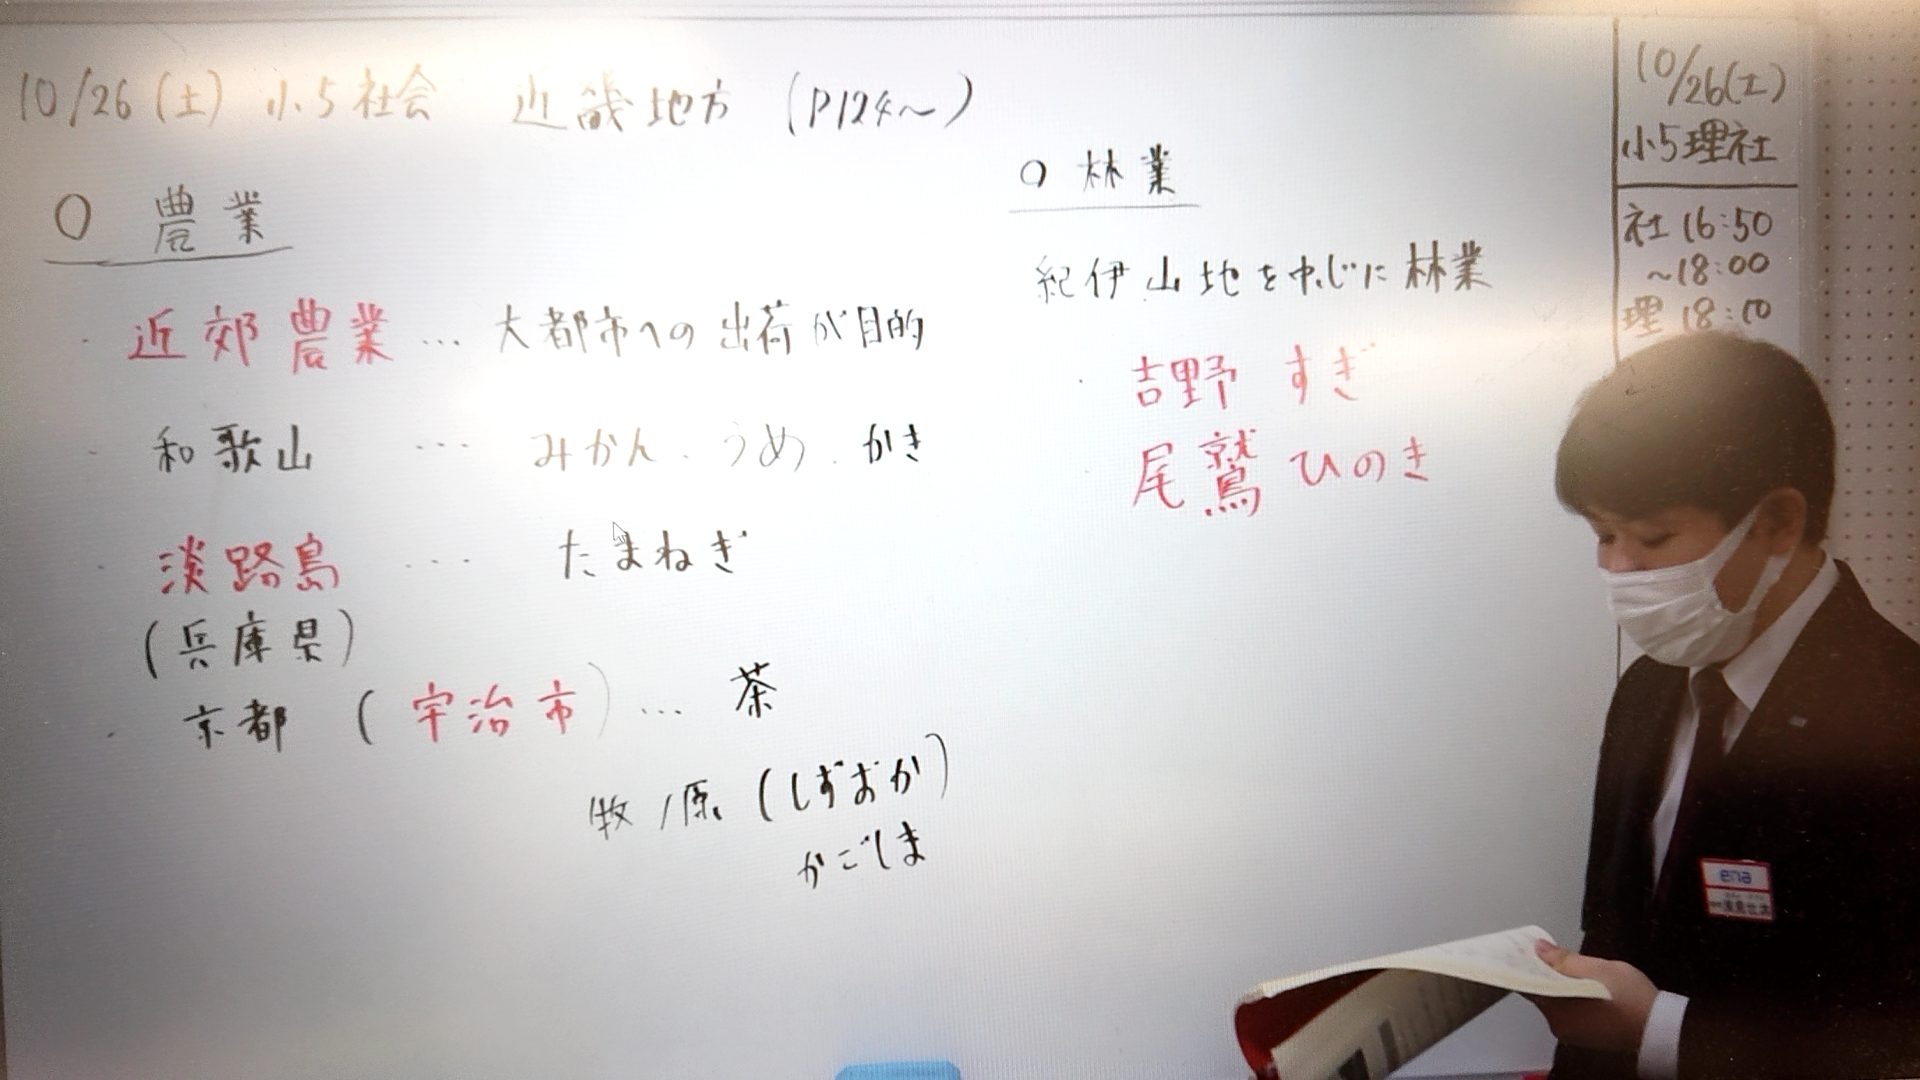 10/26(土) 小5社会 近畿地方 (P124～)
○ 農業
・近郊農業…大都市への出荷が目的
・和歌山 … みかん、うめ、かき
・淡路島 … たまねぎ
(兵庫県)
・京都 (宇治市)… 茶
牧ノ原 (しずおか)
かごしま
○ 林業
紀伊山地を中心に林業
・吉野 すぎ
・尾鷲 ひのき
10/26(土)
小5理社
社 16:50
～18:00
理 18:10
ena